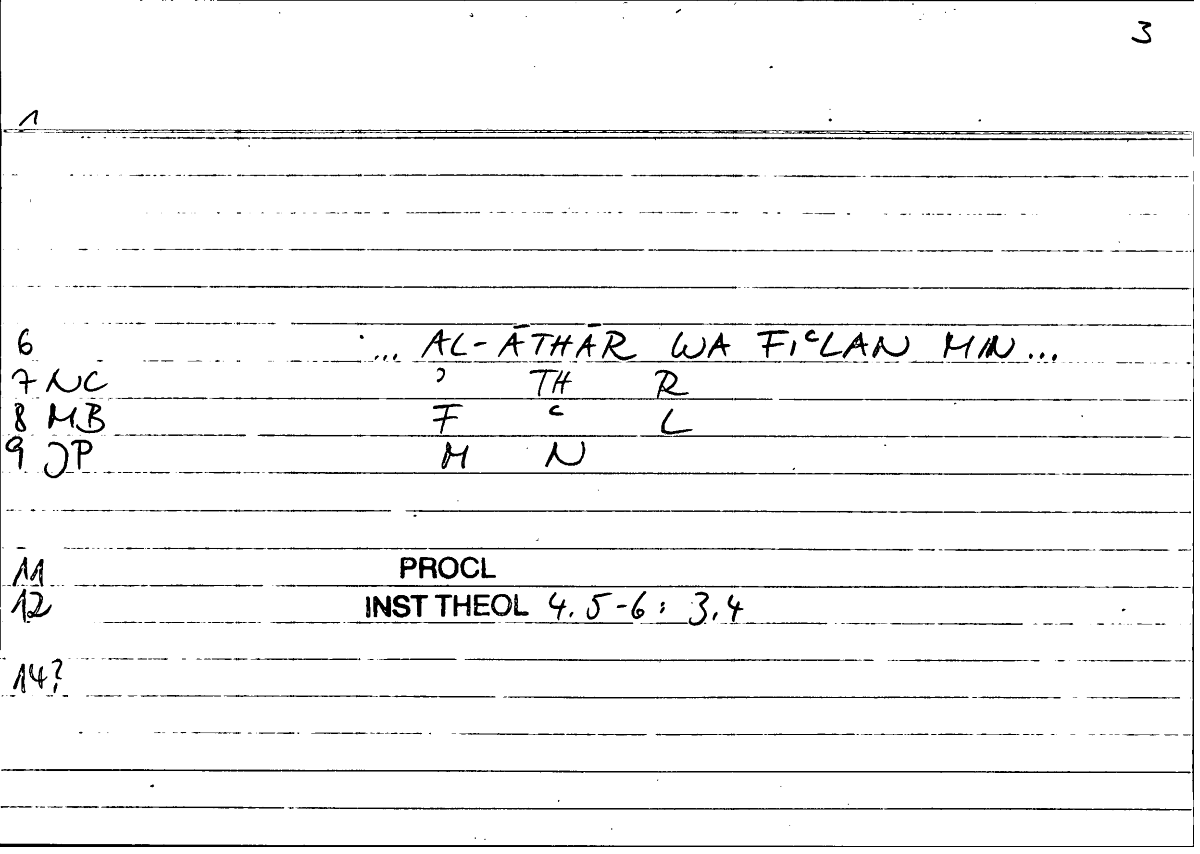 3
1
6 ... AL-ĀTHĀR WA FIᶜLAN MIN...
7 NC ʾ TH R
8 MB F ᶜ L
9 JP M N
11 PROCL
12 INST THEOL 4.5-6: 3,4
14?